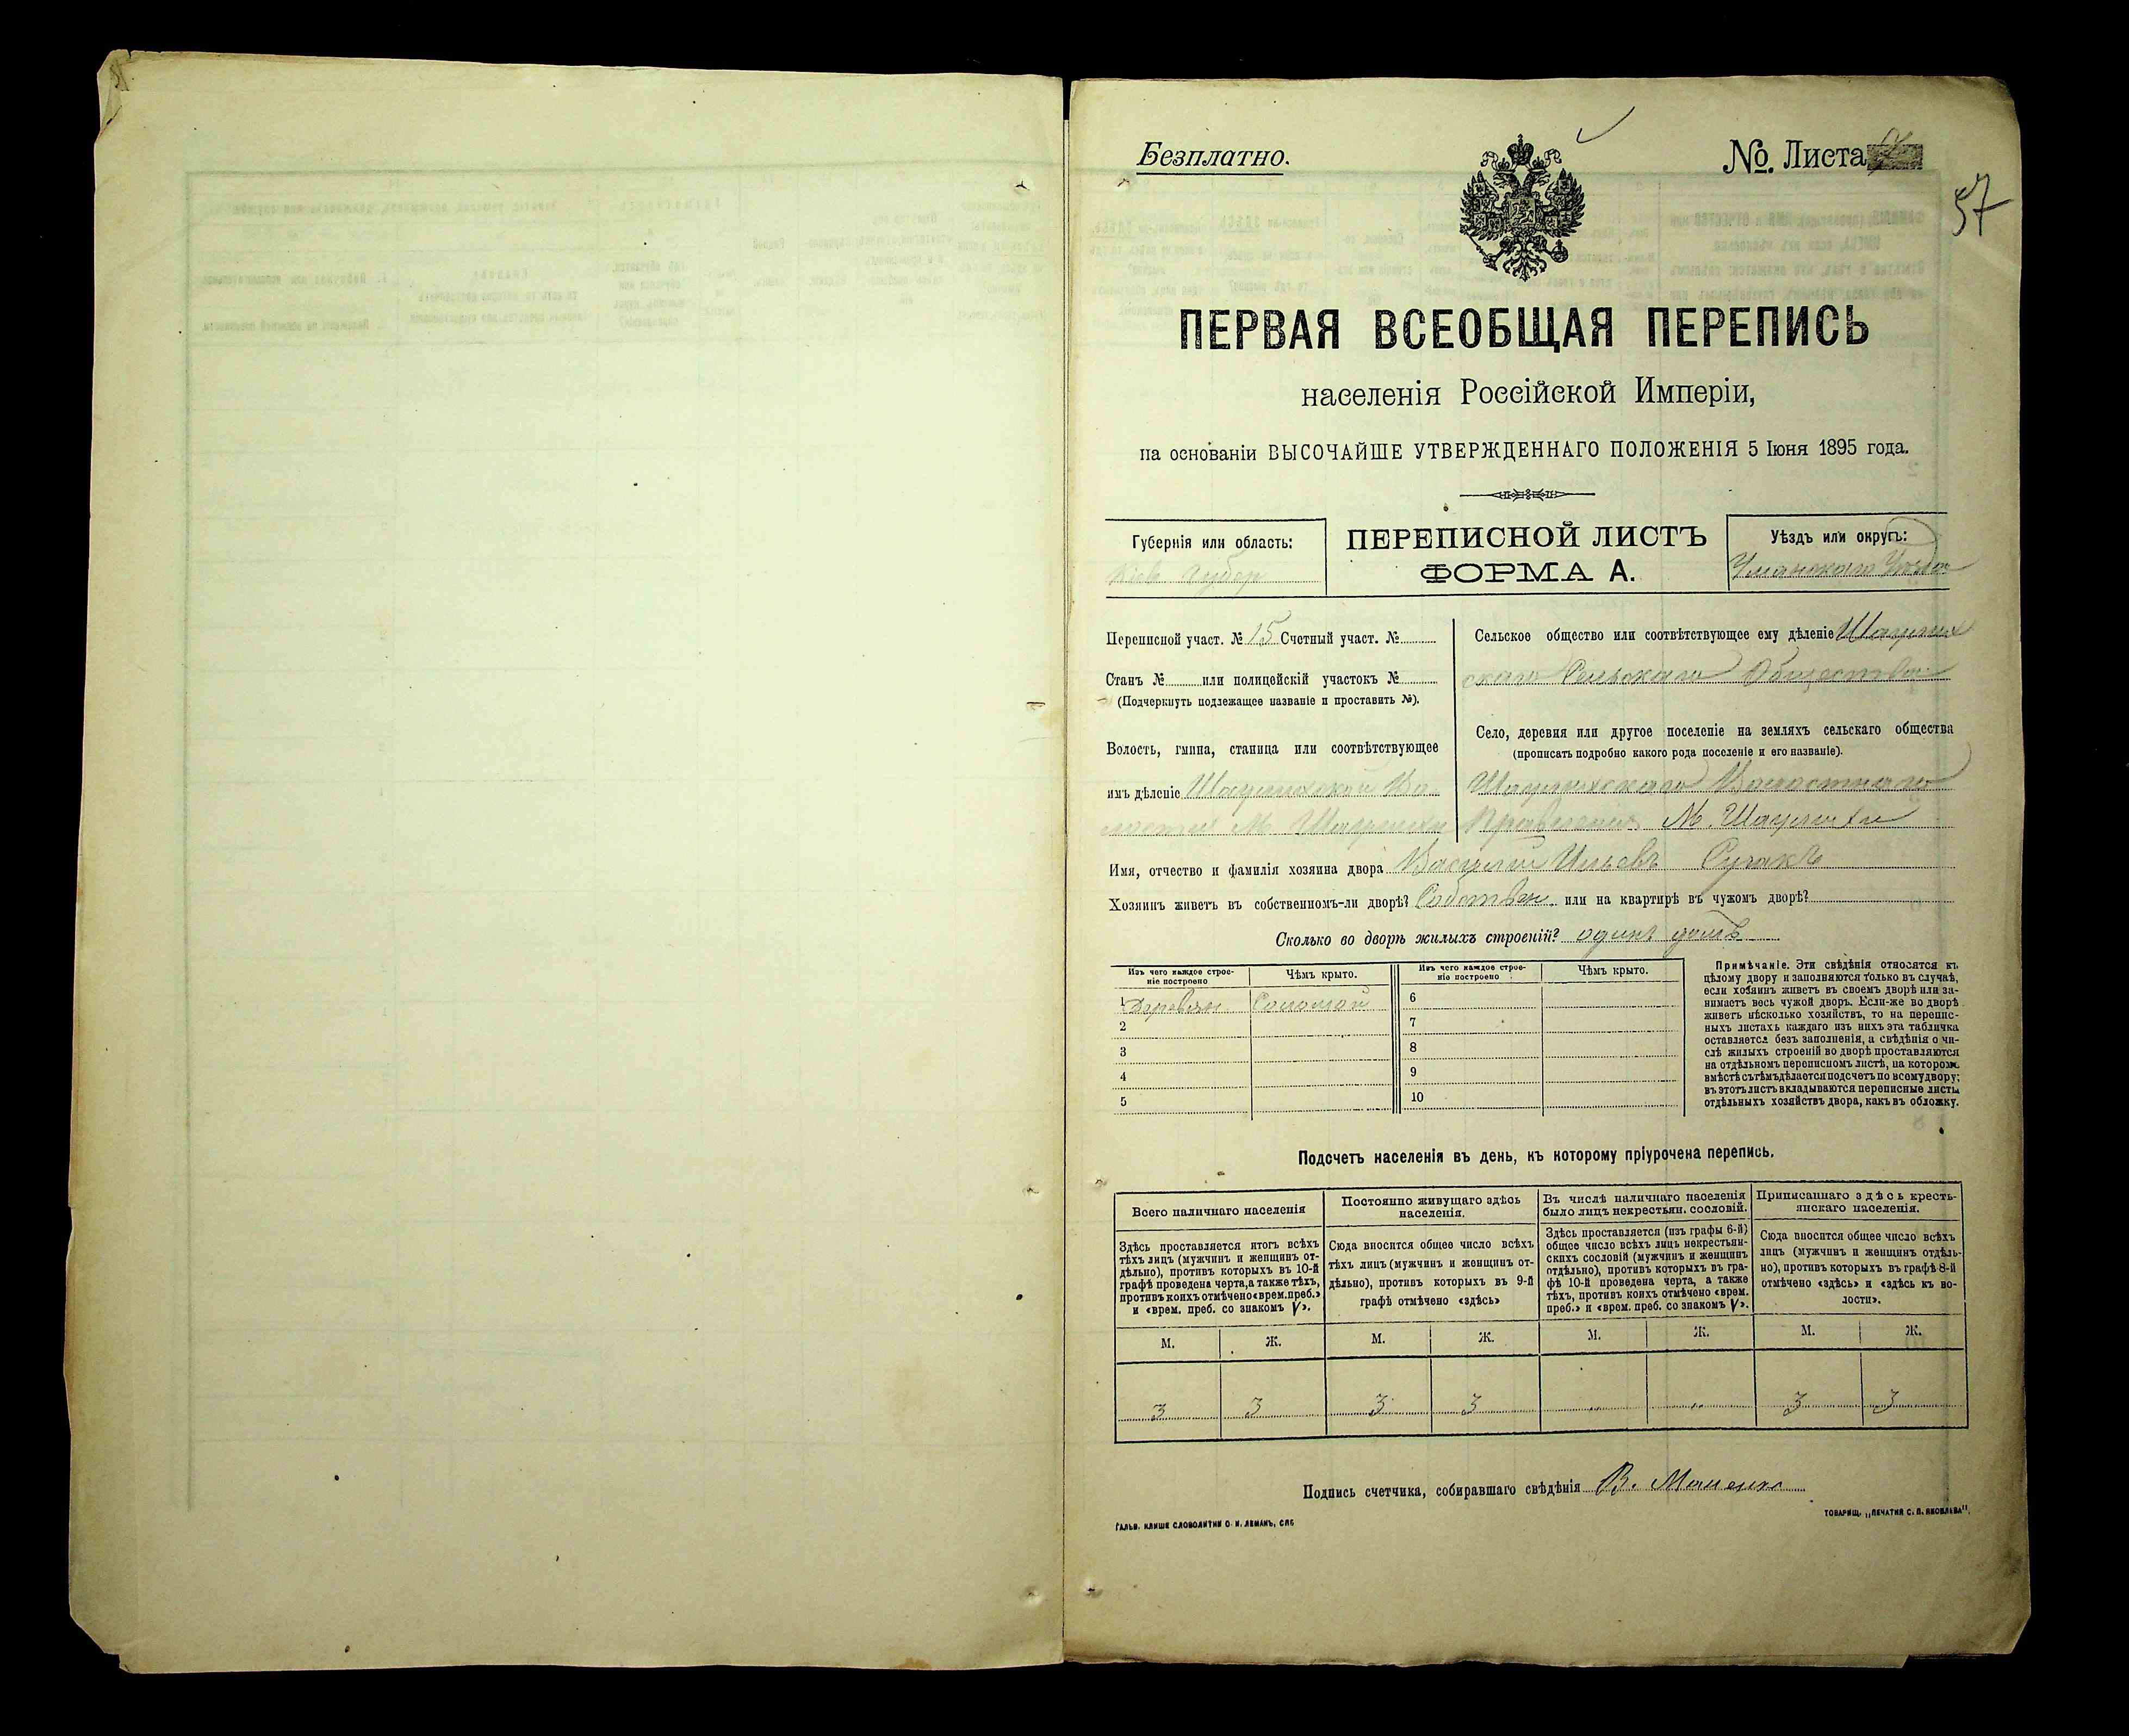 Безплатно.
№ Листа
57
ПЕРВАЯ ВСЕОБЩАЯ ПЕРЕПИСЬ
населенія Россійской Имперіи,
на основаніи ВЫСОЧАЙШЕ УТВЕРЖДЕННАГО ПОЛОЖЕНІЯ 5 Іюня 1895 года.
Губернія или область:
Кіев Губер
ПЕРЕПИСНОЙ ЛИСТЪ
ФОРМА А.
Уѣздъ или округъ:
Уманскаго Уѣзда
Переписной участ. № 15 Счетный участ. №
Станъ № или полицейскій участокъ №
(Подчеркнуть подлежащее названіе и проставить №).
Волость, гмина, станица или соотвѣтствующее
имъ дѣленіе
Сельское общество или соотвѣтствующее ему дѣленіе
скаго Сельскаго Общества
Село, деревня или другое поселеніе на земляхъ сельскаго общества
(прописать подробно какого рода поселеніе и его названіе).
Волостнаго
Правленія М.
Имя, отчество и фамилія хозяина двора Василій Ильевъ
Хозяинъ живетъ въ собственномъ-ли дворѣ? Собствен. или на квартирѣ въ чужомъ дворѣ?
Сколько во дворѣ жилыхъ строеній? одинъ домъ
Изъ чего каждое строе-
ніе построено
Чѣмъ крыто.
1 Деревян. Соломой
2
3
4
5
Изъ чего каждое строе-
ніе построено
Чѣмъ крыто.
6
7
8
9
10
Примѣчаніе. Эти свѣдѣнія относятся къ
цѣлому двору и заполняются только въ случаѣ,
если хозяинъ живетъ въ своемъ дворѣ или за-
нимаетъ весь чужой дворъ. Если-же во дворѣ
живетъ нѣсколько хозяйствъ, то на перепис-
ныхъ листахъ каждаго изъ нихъ эта табличка
оставляется безъ заполненія, а свѣдѣнія о чи-
слѣ жилыхъ строеній во дворѣ проставляются
на отдѣльномъ переписномъ листѣ, на которомъ
вмѣстѣ съ тѣмъ дѣлается подсчетъ по всему двору;
въ этотъ листъ вкладываются переписные листы
отдѣльныхъ хозяйствъ двора, какъ въ обложку.
Подсчетъ населенія въ день, къ которому пріурочена перепись.
Всего наличнаго населенія
Здѣсь проставляется итогъ всѣхъ
тѣхъ лицъ (мужчинъ и женщинъ от-
дѣльно), противъ которыхъ въ 10-й
графѣ проведена черта, а также тѣхъ,
противъ коихъ отмѣчено «врем. преб.»
и «врем. преб. со знакомъ V».
Постоянно живущаго здѣсь
населенія.
Сюда вносится общее число всѣхъ
тѣхъ лицъ (мужчинъ и женщинъ от-
дѣльно), противъ которыхъ въ 9-й
графѣ отмѣчено «здѣсь»
Въ числѣ наличнаго населенія
было лицъ некрестьян. сословій.
Здѣсь проставляется (изъ графы 6-й)
общее число всѣхъ лицъ некрестьян-
скихъ сословій (мужчинъ и женщинъ
отдѣльно), противъ которыхъ въ гра-
фѣ 10-й проведена черта, а также
тѣхъ, противъ коихъ отмѣчено «врем.
преб.» и «врем. преб. со знакомъ V».
Приписаннаго здѣсь кресть-
янскаго населенія.
Сюда вносится общее число всѣхъ
лицъ (мужчинъ и женщинъ отдѣль-
но), противъ которыхъ въ графѣ 8-й
отмѣчено «здѣсь» и «здѣсь къ во-
лости».
М. Ж. М. Ж. М. Ж. М. Ж.
3 3 3 3 „ „ 3 3
Подпись счетчика, собиравшаго свѣдѣнія В.
ГАЛЬВ. КЛИШЕ СЛОВОЛИТНИ О. И. ЛЕМАНЪ, СПБ
ТОВАРИЩ. „ПЕЧАТНЯ С. П. ЯКОВЛЕВА".